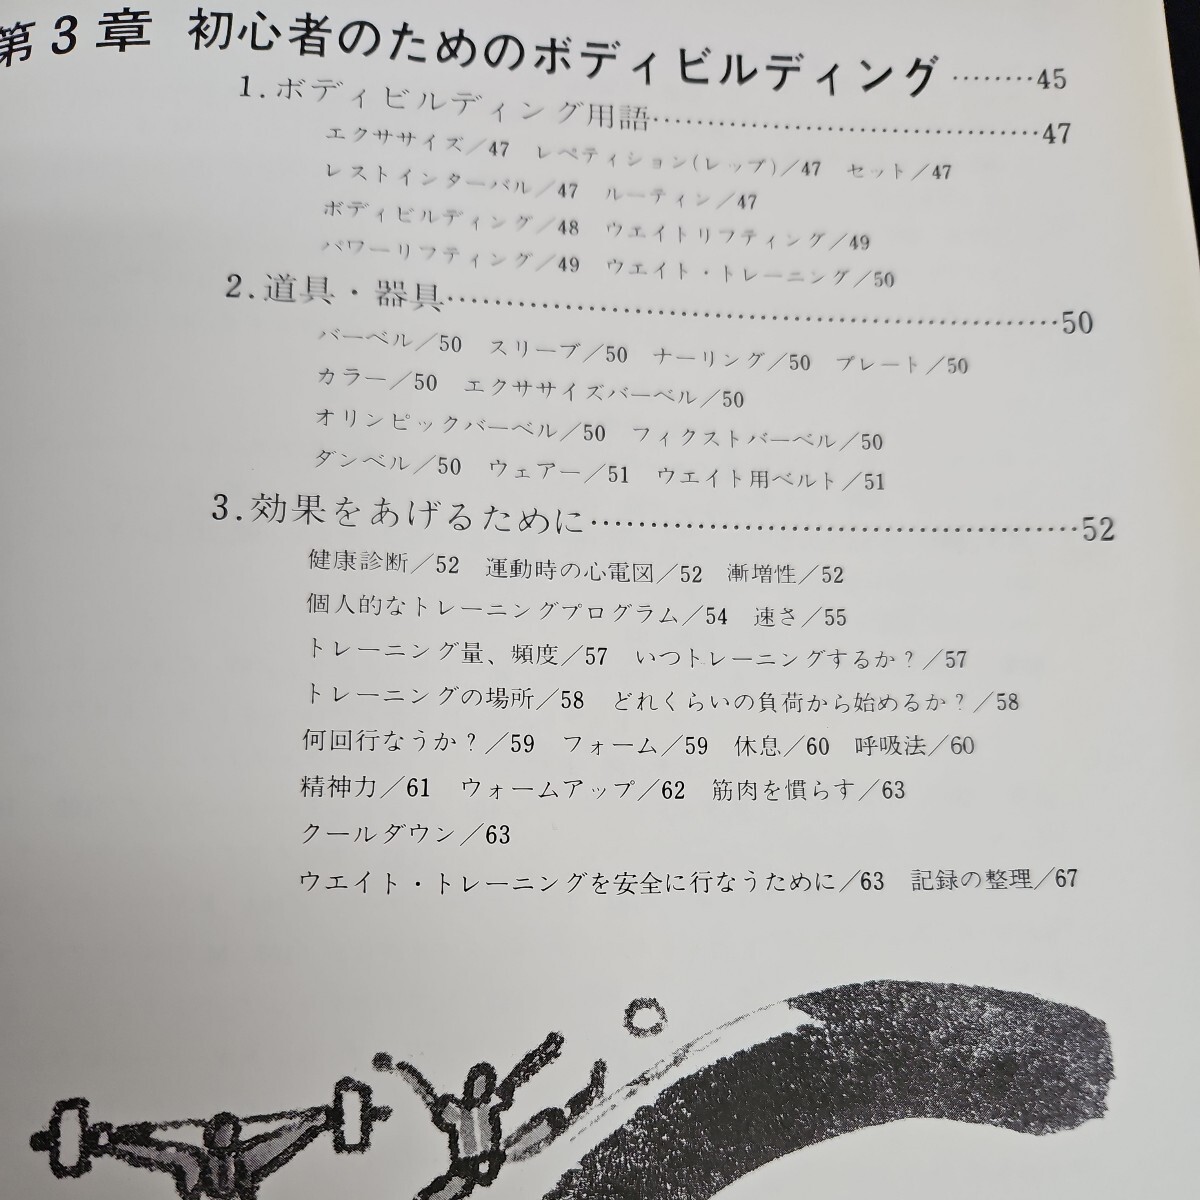 第3章 初心者のためのボディビルディング………45
1.ボディビルディング用語…………………………………47
エクササイズ/47 レペティション(レップ)/47 セット/47
レストインターバル/47 ルーティン/47
ボディビルディング/48 ウエイトリフティング/49
パワーリフティング/49 ウエイト・トレーニング/50
2.道具・器具……………………………………………………50
バーベル/50 スリーブ/50 ナーリング/50 プレート/50
カラー/50 エクササイズバーベル/50
オリンピックバーベル/50 フィクストバーベル/50
ダンベル/50 ウェアー/51 ウエイト用ベルト/51
3.効果をあげるために…………………………………………52
健康診断/52 運動時の心電図/52 漸増性/52
個人的なトレーニングプログラム/54 速さ/55
トレーニング量、頻度/57 いつトレーニングするか?/57
トレーニングの場所/58 どれくらいの負荷から始めるか?/58
何回行なうか?/59 フォーム/59 休息/60 呼吸法/60
精神力/61 ウォームアップ/62 筋肉を慣らす/63
クールダウン/63
ウエイト・トレーニングを安全に行なうために/63 記録の整理/67